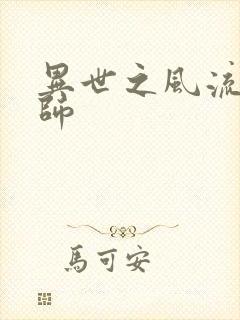 異世之風流
師
馬可安